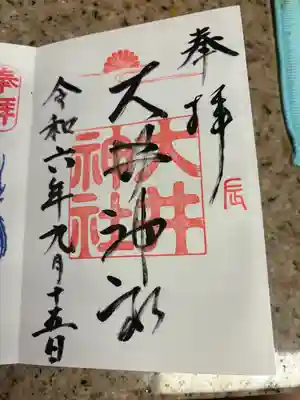 奉拝
辰
大井神社
大井
神社
令和六年九月十五日
奉拝